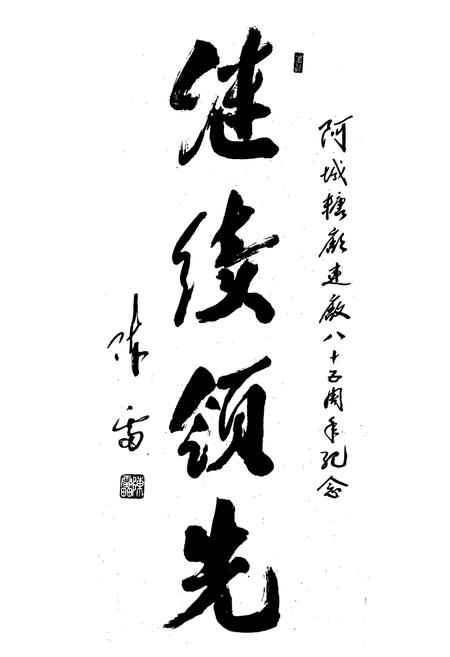 阿城糖廠建廠八十五周年纪念
继续领先
陈雷